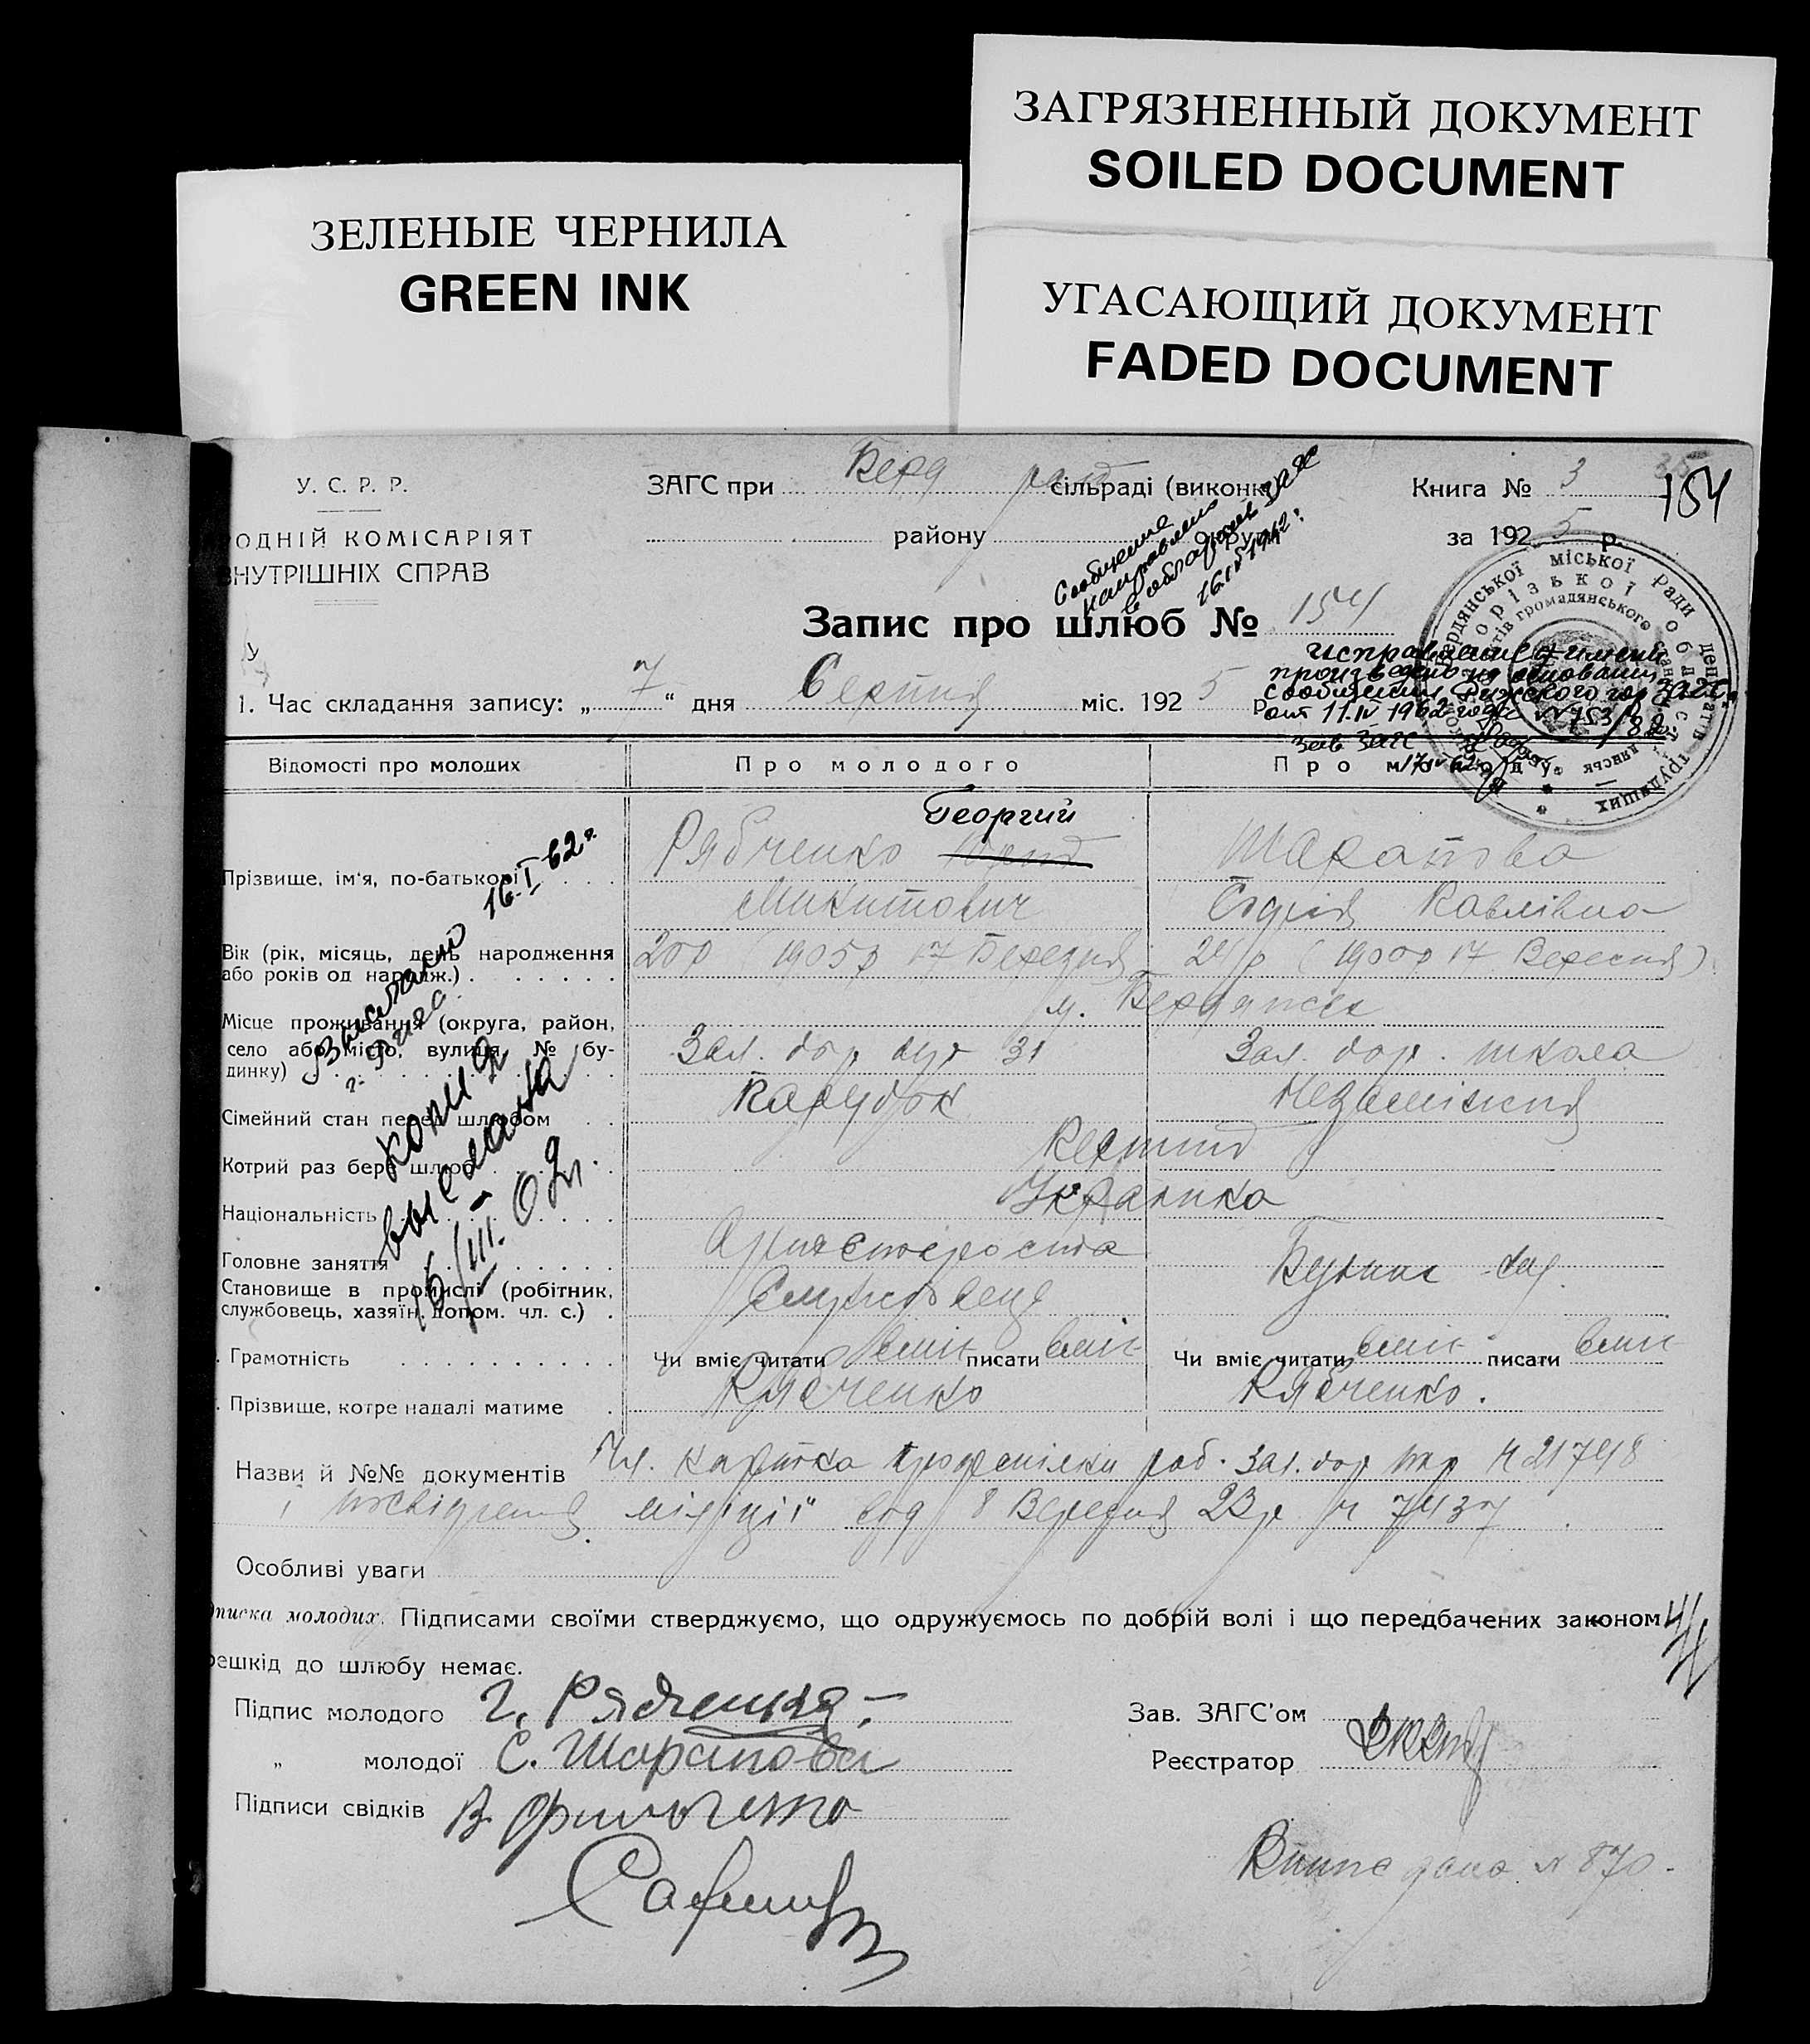 ЗАГРЯЗНЕННЫЙ ДОКУМЕНТ
SOILED DOCUMENT
ЗЕЛЕНЫЕ ЧЕРНИЛА
GREEN INK
УГАСАЮЩИЙ ДОКУМЕНТ
FADED DOCUMENT
У. С. Р. Р.
ОДНІЙ КОМІСАРІЯТ
ВНУТРІШНІХ СПРАВ
ЗАГС при Берд сільраді (виконк
Книга № 3
154
району округи
за 192 5 р.
Сообщение
направлено
в облархив ЗАГС
Запис про шлюб № 154
У
1. Час складання запису: „ 7 “ дня Серпня міс. 192 5 р.
Исправление имени
произведено на основании
сообщения Рижского гор ЗАГС
от 11.IV 1962 года № 753/82
Зав ЗАГС
Бердянської міської ради депутатів трудящих
Відомості про молодих
Про молодого
Про молоду
Прізвище, ім'я, по-батькові
Георгий
Рябченко
Микитович
Шарапова
Софія Павлівна
Вік (рік, місяць, день народження
або років од народж.)
20р (1905р 17 Березня)
24р (1900р 17 Вересня)
Місце проживання (округа, район,
село або місто, вулиця, № бу-
динку)
м. Бердянськ
Зал. дор 31
Зал. дор. школа
Сімейний стан перед шлюбом
Парубок
Незаміжня
Котрий раз бере шлюб
Національність
Українка
Головне заняття
Становище в промислі (робітник,
службовець, хазяїн, допом. чл. с.)
Службовець
Грамотність
Чи вміє читати вміє писати вміє
Чи вміє читати вміє писати вміє
Прізвище, котре надалі матиме
Рябченко
Рябченко.
16.I 62 г.
г. Рига
копия
выслана
16/III. 02г.
Назви й №№ документів Чл. картка профспілки роб. зал. дор тр № 21748
і посвідчення міліції від 8 Вересня 23р № 7437
Особливі уваги
дписка молодих. Підписами своїми стверджуємо, що одружуємось по добрій волі і що передбачених законом
решкід до шлюбу немає.
Підпис молодого Г. Рябченко
„ молодої С. Шарапова
Підписи свідків
Зав. ЗАГС'ом
Реєстратор
дана № 870.